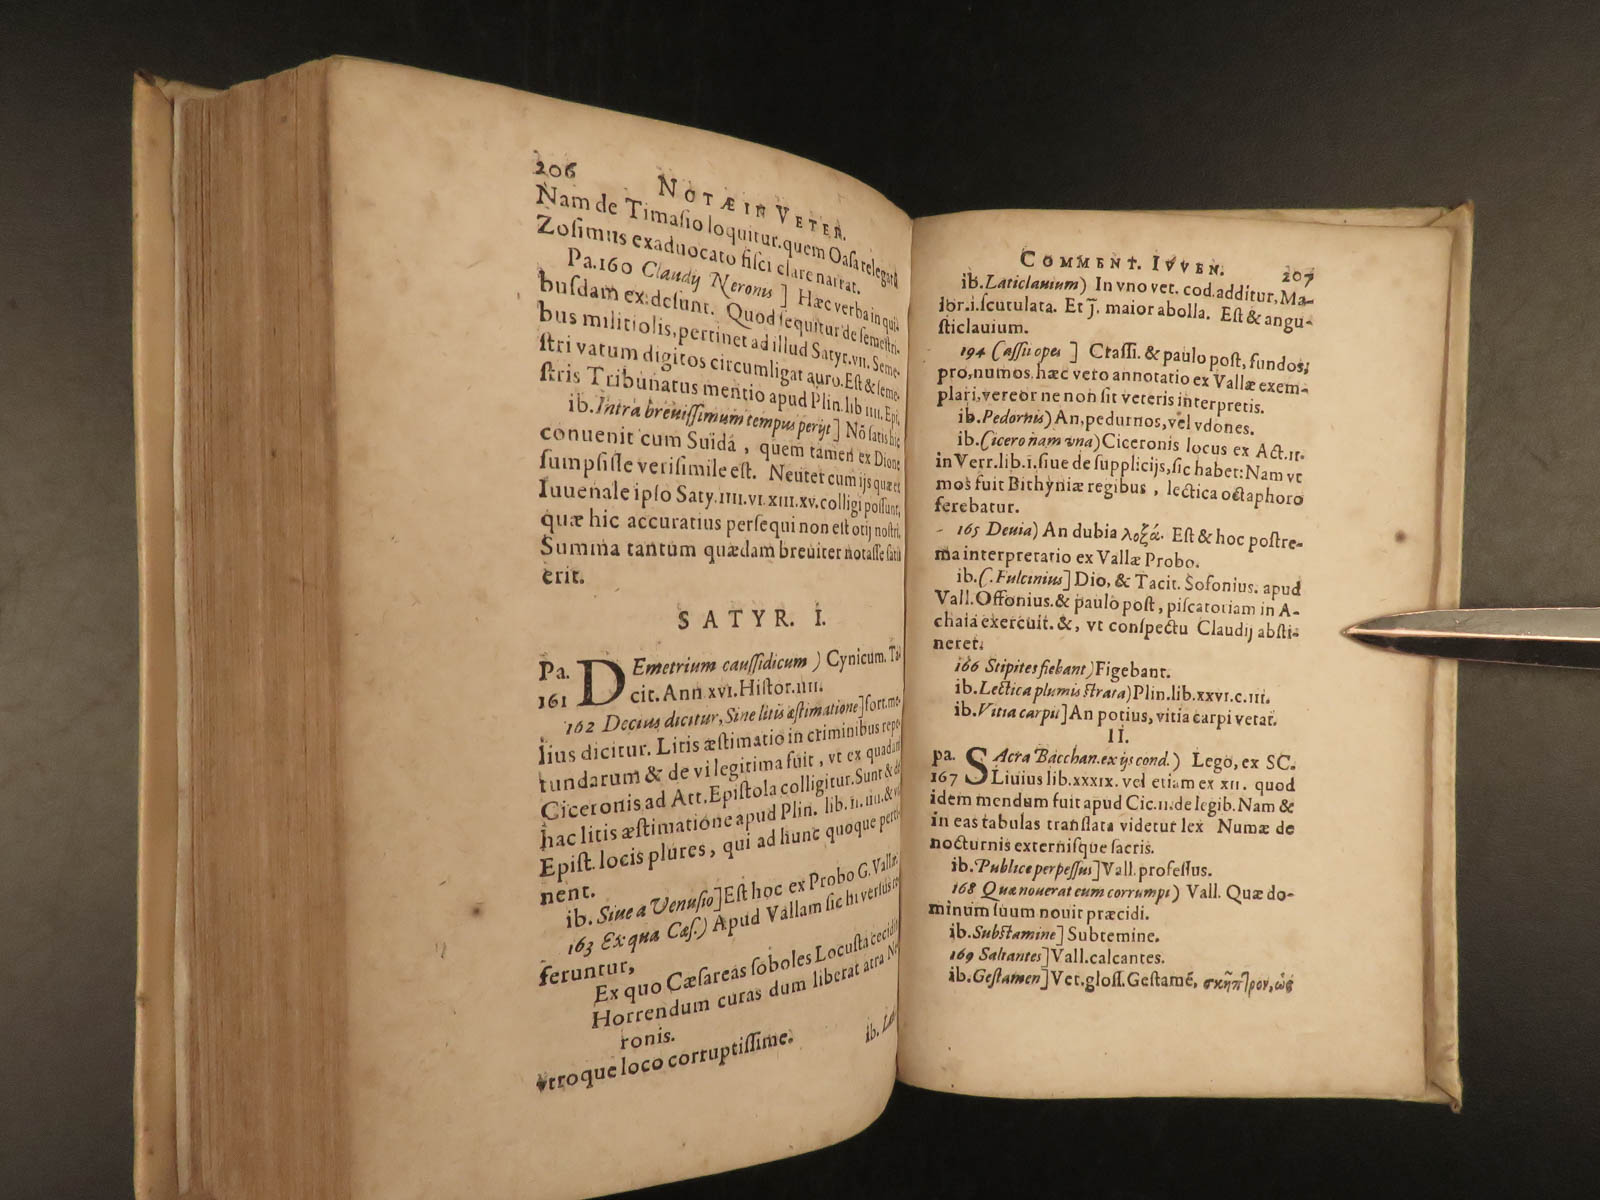 206
NOTÆ IN VETER.
Nam de Timaſio loquitur. quem Oaſa relegatũ
Zoſimus exaduocato fiſci clare narrat.
Pa.160 Claudij Neronis ] Hæc verba in qui-
buſdam ex: deſunt. Quod ſequitur de ſemeſtri-
bus militiolis, pertinet ad illud Satyr. vii. Seme-
ſtri vatum digitos circumligat auro. Eſt & ſeme-
ſtris Tribunatus mentio apud Plin. lib iiii. Epi,
ib. Intra breuiſſimum tempus perijt ] Nõ ſatis hic
conuenit cum Suidâ , quem tamen ex Dione
ſumpſiſſe veriſimile eſt. Neuter cum ijs quæ et
Iuuenale ipſo Saty. IIII. VI. XIII. XV. colligi poſſunt,
quæ hic accuratius perſequi non eſt otij noſtri.
Summa tantum quædam breuiter notaſſe ſatis
erit.
SATYR. I.
Pa. DEmetrium cauſſidicum ) Cynicum. Ta-
161 cit. Ann xvi. Hiſtor. IIII.
162 Decius dicitur, Sine litis æſtimatione] fort. me-
lius dicitur. Litis æſtimatio in criminibus repe-
tundarum & de vi legitima fuit , vt ex quadam
Ciceronis ad Att. Epiſtola colligitur. Sunt & de
hac litis æſtimatione apud Plin. lib. II. IIII. & vi
Epiſt. locis plures , qui ad hunc quoque perti-
nent.
ib. Siue a Venuſio] Eſt hoc ex Probo G. Vallæ.
163 Ex qua Cæſ.) Apud Vallam ſic hi verſus
feruntur,
Ex quo Cæſareas ſoboles Locuſta cecidit
Horrendum curas dum liberat atra Ne
ronis.
vtroque loco corruptiſſime.
ib. Lati
COMMENT. IVVEN. 207
ib. Laticlauium) In vno vet. cod. additur, Ma-
ior.i. ſcutulata. Et j̃. maior abolla. Eſt & angu-
ſticlauium.
194 Caſſii opes ] Craſſi. & paulo poſt, fundos;
pro, numos. hæc vero annotatio ex Vallæ exem-
plari, vereor ne non ſit veteris interpretis.
ib. Pedornis) An, pedurnos, vel vdones.
ib. Cicero nam vna) Ciceronis locus ex Act. II.
in Verr. lib. I. ſiue de ſupplicijs, ſic habet: Nam vt
mos fuit Bithyniæ regibus , lectica octaphoro
ferebatur.
165 Deuia) An dubia λοξά. Eſt & hoc poſtre-
ma interpretatio ex Vallæ Probo.
ib. C. Fulcinius] Dio, & Tacit. Sofonius. apud
Vall. Offonius. & paulo poſt , piſcatoriam in A-
chaia exercuit. &, vt conſpectu Claudij abſti-
neret.
166 Stipites fiebant) Figebant.
ib. Lectica plumis ſtrata) Plin. lib. xxvi. c. III.
ib. Vitia carpit] An potius, vitia carpi vetat.
II.
pa. SAcra Bacchan. ex ijs cond.) Lego, ex SC.
167 Liuius lib. xxxix. vel etiam ex XII. quod
idem mendum fuit apud Cic. II. de legib. Nam &
in eas tabulas tranſlata videtur lex Numæ de
nocturnis externiſque ſacris.
ib. Publice perpeſſus] Vall. profeſſus.
168 Quæ nouerat eum corrumpi) Vall. Quæ do-
minum ſuum nouit præcidi.
ib. Subſtamine] Subtemine.
169 Saltantes] Vall. calcantes.
ib. Geſtamen] Vet. gloſſ. Geſtamẽ, σκῆπτρον, ὡς